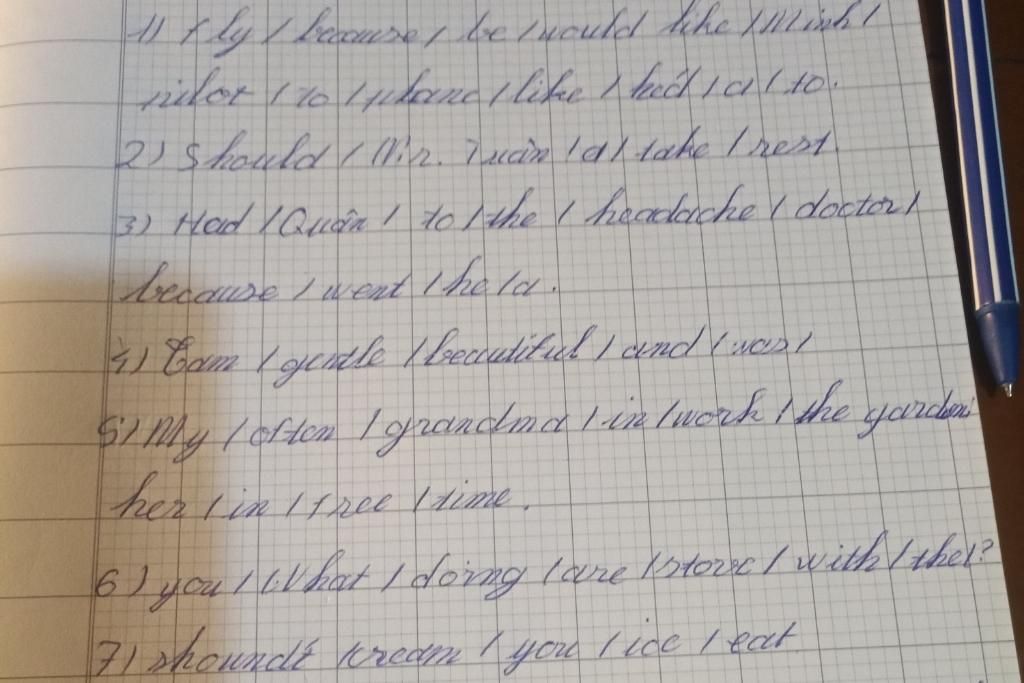 1) fly / because / be / would like / Minh /
pilot / to / plane / like / he'd / a / to.
2) Should / Mr. Tuấn / a / take / rest.
3) Had / Quân / to / the / headache / doctor /
because / went / he / a.
4) Cam / gentle / beautiful / and / was /
5) My / often / grandma / in / work / the garden
her / in / free / time.
6) you / What / doing / are / stove / with / the / ?
7) shound't cream / you / ice / eat